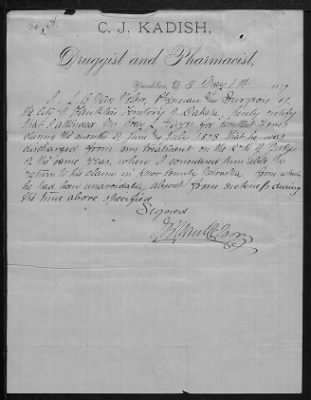 C. J. KADISH,
Druggist and Pharmacist,
Yankton, D. T. 1879
I, J. B. Van Velsor, Physician and Surgeon of
the city of Yankton Territory of Dakota, hereby certify
that I attended Mr for
during the months of June and July 1878 that he was
discharged from my treatment on the 27th of
of the same year, when I considered him able to
return to his claim in Knox county Nebraska from which
he had been unavoidably absent from sickness during
the time above specified
Signed
J B Van Velsor